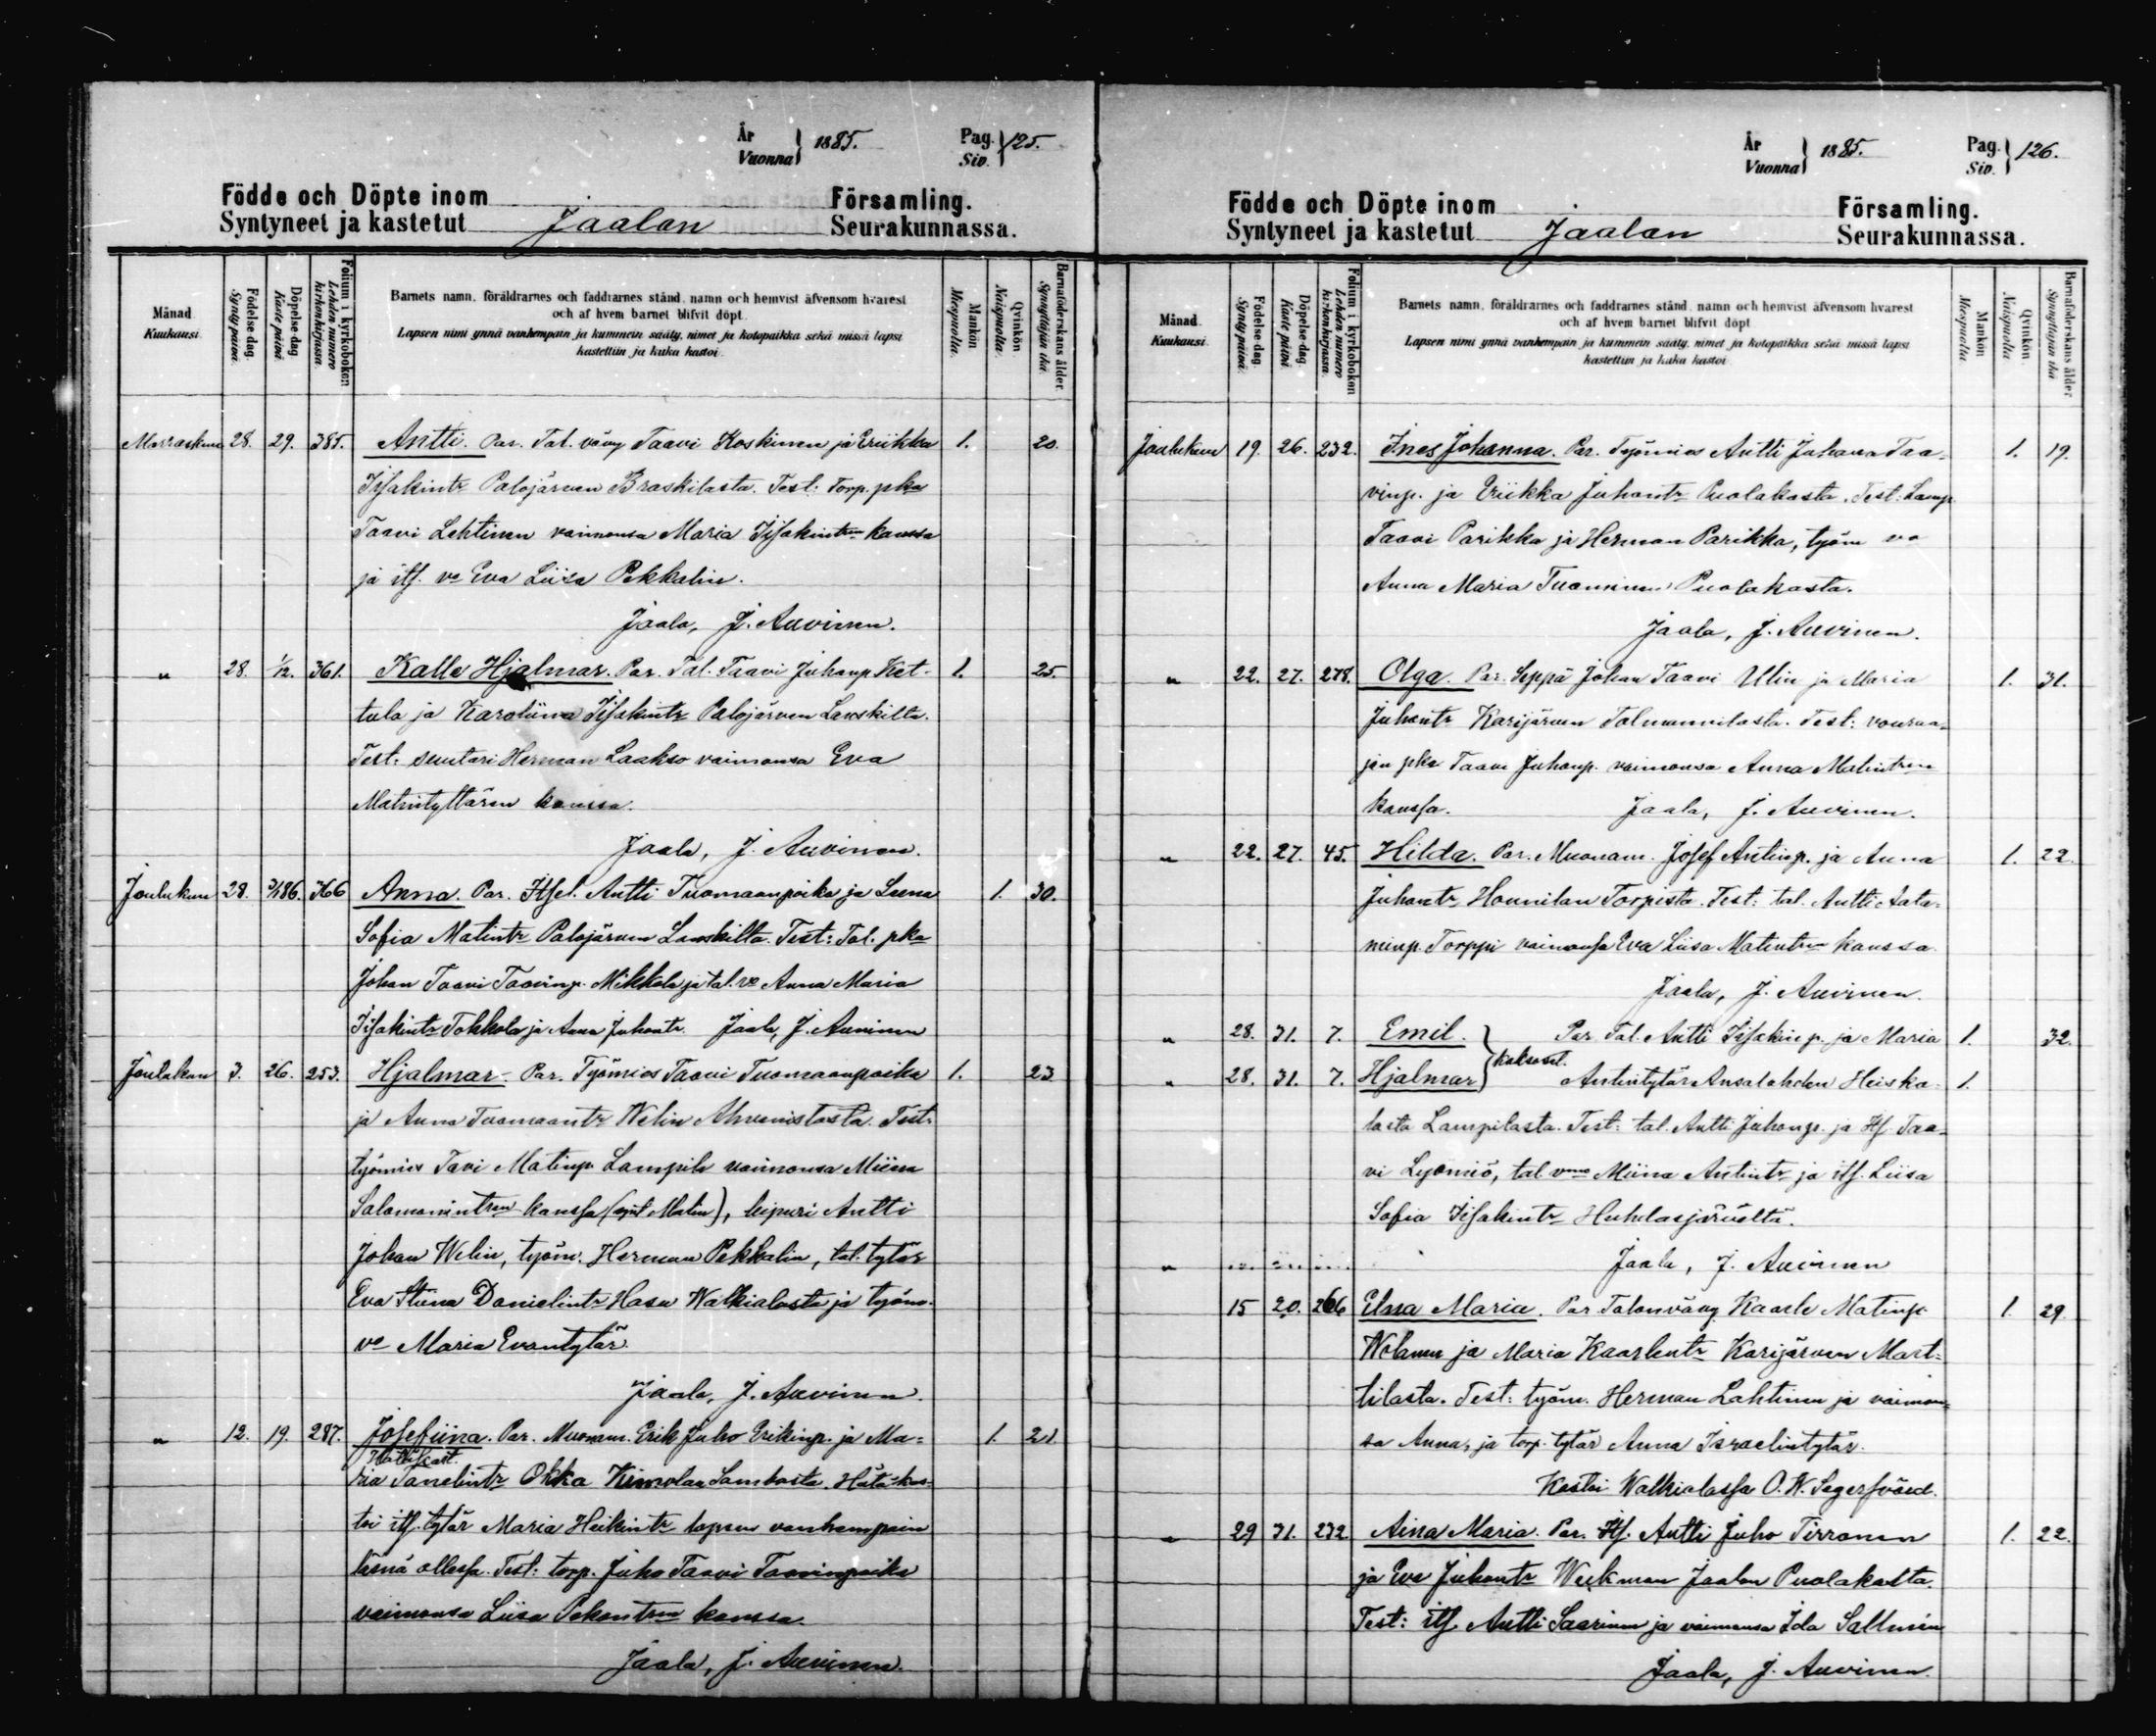 År
Vuonna } 1885.
Pag.
Siv. } 125.
Födde och Döpte inom
Syntyneet ja kastetut Jaalan
Församling.
Seurakunnassa.
Månad
Kuukausi
Födelse dag
Synty päivä
Döpelse dag
Kaste päivä
Folium i kyrkoboken
Lehden numero kirkonkirjassa.
Barnets namn, föräldrarnes och faddrarnes stånd, namn och hemvist äfvensom hvarest
och af hvem barnet blifvit döpt
Lapsen nimi ynnä vanhempain ja kummein sääty, nimet ja kotopaikka sekä missä lapsi
kastettiin ja kuka kastoi
Mankön
Miespuolta.
Qvinkön
Naispuolta.
Barnaföderskans ålder.
Synnyttäjän ikä
Marraskuu 28. 29. 385. Antti. Par. Tal. vävy Taavi Koskinen ja Eriikka 1. 20.
Iisakintr Palojärven Braskilasta. Test: Torp. pka
Taavi Lehtinen vaimonsa Maria Iisakintren kanssa
ja its. va Eva Liisa Pekkalin.
Jaala, J. Auvinen.
" 28. 1/12. 361. Kalle Hjalmar. Par. Tal. Taavi Juhanp. Ket- 1. 25.
tula ja Karoliina Iisakintr Palojärven Lanskilta.
Test: suutari Herman Laakso vaimonsa Eva
Matintyttären kanssa.
Jaala, J. Auvinen.
Joulukuu 28. 3/1 86. 366 Anna. Par. Itsel. Antti Tuomaanpoika ja Leena 1. 30.
Sofia Matintr Palojärven Lanskilta. Test: Tal. pka
Johan Taavi Taavinp. Mikkola ja tal. va Anna Maria
Iisakintr Tokkola ja Anna Juhontr. Jaala, J. Auvinen
Joulukuu 3. 26. 253. Hjalmar. Par. Työmies Taavi Tuomaanpoika 1. 23
ja Anna Tuomaantr Welin Ahvenistosta. Test:
työmies Tavi Matinp. Lampila vaimonsa Miina
Salomonintren kanssa (synt Malin), leipuri Antti
Johan Welin, työm. Herman Pekkalin, tal. tytär
Eva Stiina Danielintr Hasu Walkialasta ja työm.
va Maria Evantytär.
Jaala, J. Auvinen.
" 12. 19. 287. Josefiina. Par. Muonam. Erik Juho Erikinp. ja Ma= 1. 21
Hätäkast.
ria Tanelintr Okka Kimolan Sambasta. Hätä-kas=
toi itf. tytär Maria Heikintr lapsen vanhempain
läsnä ollessa. Test: torp. Juho Taavi Taavinpoika
vaimonsa Liisa Pekontren kanssa.
Jaala, J. Auvinen.
År
Vuonna } 1885.
Pag.
Siv. } 126.
Födde och Döpte inom
Syntyneet ja kastetut Jaalan
Församling.
Seurakunnassa.
Månad.
Kuukausi.
Födelse dag.
Synty päivä.
Döpelse dag.
Kaste päivä
Folium i kyrkoboken
Lehden numero kirkonkirjassa.
Barnets namn, föräldrarnes och faddrarnes stånd, namn och hemvist äfvensom hvarest
och af hvem barnet blifvit döpt
Lapsen nimi ynnä vanhempain ja kummein sääty, nimet ja kotopaikka sekä missä lapsi
kastettiin ja kuka kastoi
Mankön
Miespuolta
Qvinkön
Naispuolta
Barnaföderskans ålder.
Synnyttäjän ikä
Joulukuu 19. 26. 232. Ines Johanna. Par. Työmies Antti Juhana Taa- 1. 19.
vinp. ja Eriikka Juhontr Puolakasta. Test: Lamp.
Taavi Parikka ja Herman Parikka, työm va
Anna Maria Tuominen Puolakasta.
Jaala, J. Auvinen.
" 22. 27. 278. Olga. Par. Seppä Johan Taavi Ulin ja Maria 1. 31.
Juhontr Karijärven Tolmunnilasta. Test: vouraa-
jan pka Taavi Juhanp. vaimonsa Anna Matintren
kanssa. Jaala, J. Auvinen.
" 22. 27. 45. Hilda. Par. Muonam. Josef Antinp. ja Anna 1. 22
Juhontr Hounilan Torpista. Test: tal. Antti Aata-
minp. Torppi vaimonsa Eva Liisa Matintren kanssa
Jaala, J. Auvinen.
" 28. 31. 7. Emil. } Par. Tal. Antti Iisakinp. ja Maria 1. 32.
kaksoset.
" 28. 31. 7. Hjalmar } Antintytär Ansalahden Heiska- 1.
lasta Lampilasta. Test: tal. Antti Juhonp. ja Itf. Taa-
vi Lyömiö, tal. vmo Miina Antintr ja itf. Liisa
Sofia Iisakintr Huhdasjärveltä.
" Jaala, J. Auvinen
15 20. 266 Elna Maria. Par. Talonvävy Kaarle Matinp. 1. 29
Nolanen ja Maria Kaarlentr Karijärven Mart=
tilasta. Test: työm. Herman Lahtinen ja vaimon=
sa Anna, ja torp. tytär Anna Israelintytär.
Kastoi Walkialassa O. W. Segersvärd.
" 29 31. 232 Aina Maria. Par. Itf. Antti Juho Tirronen 1. 22.
ja Eva Juhontr Weckman Jaalan Puolakalta.
Test: itf. Antti Saarinen ja vaimonsa Ida Sallmén
Jaala, J. Auvinen.